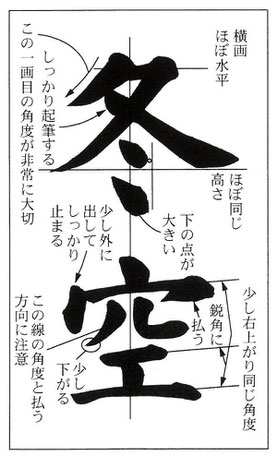 横画
ほぼ水平
しっかり起筆する
この一画目の角度が非常に大切
冬
ほぼ同じ
高さ
下の点が
大きい
少し外に
出して
しっかり
止まる
空
少し右上がり同じ角度
鋭角に
払う
少し
下がる
この線の角度と払う
方向に注意